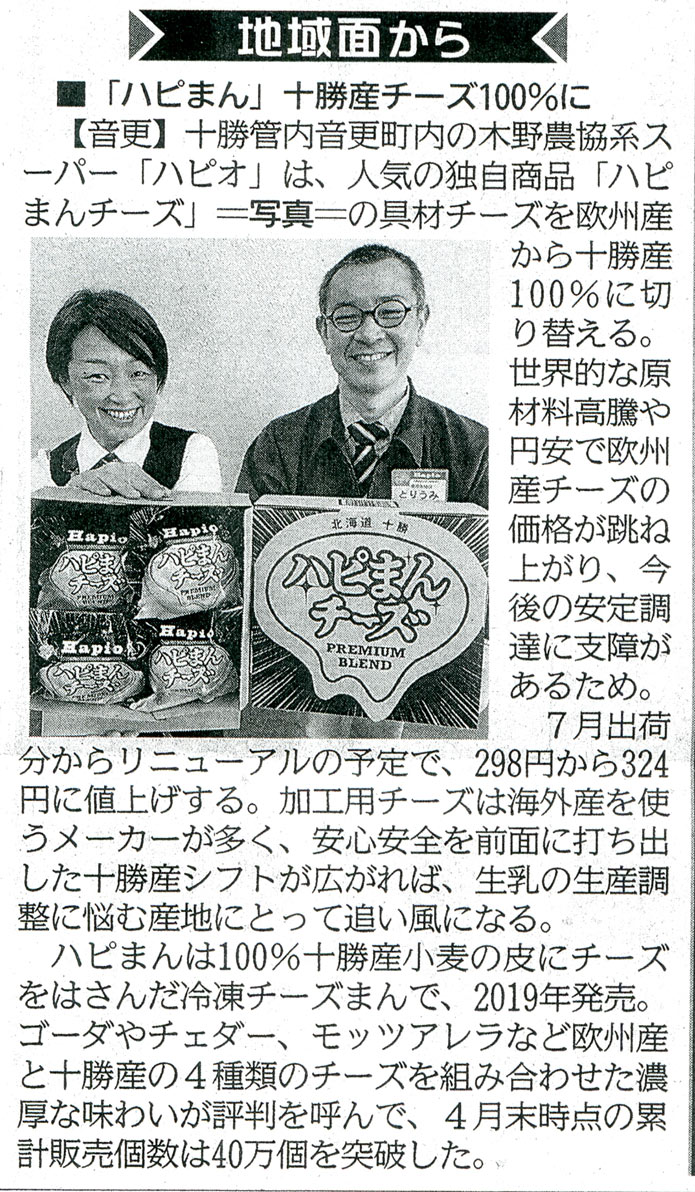 地域面から
■「ハピまん」十勝産チーズ100%に
【音更】十勝管内音更町内の木野農協系ス
ーパー「ハピオ」は、人気の独自商品「ハピ
まんチーズ」＝写真＝の具材チーズを欧州産
から十勝産
100%に切
り替える。
世界的な原
材料高騰や
円安で欧州
産チーズの
価格が跳ね
上がり、今
後の安定調
達に支障が
あるため。
7月出荷
分からリニューアルの予定で、298円から324
円に値上げする。加工用チーズは海外産を使
うメーカーが多く、安心安全を前面に打ち出
した十勝産シフトが広がれば、生乳の生産調
整に悩む産地にとって追い風になる。
ハピまんは100%十勝産小麦の皮にチーズ
をはさんだ冷凍チーズまんで、2019年発売。
ゴーダやチェダー、モッツアレラなど欧州産
と十勝産の4種類のチーズを組み合わせた濃
厚な味わいが評判を呼んで、4月末時点の累
計販売個数は40万個を突破した。
Hapio
とりうみ
Hapio
ハピまん
チーズ
PREMIUM
BLEND
Hapio
ハピまん
チーズ
PREMIUM
BLEND
Hapio
ハピまん
チーズ
Hapio
ハピまん
チーズ
PREMIUM
BLEND
北海道 十勝
ハピまん
チーズ
PREMIUM
BLEND